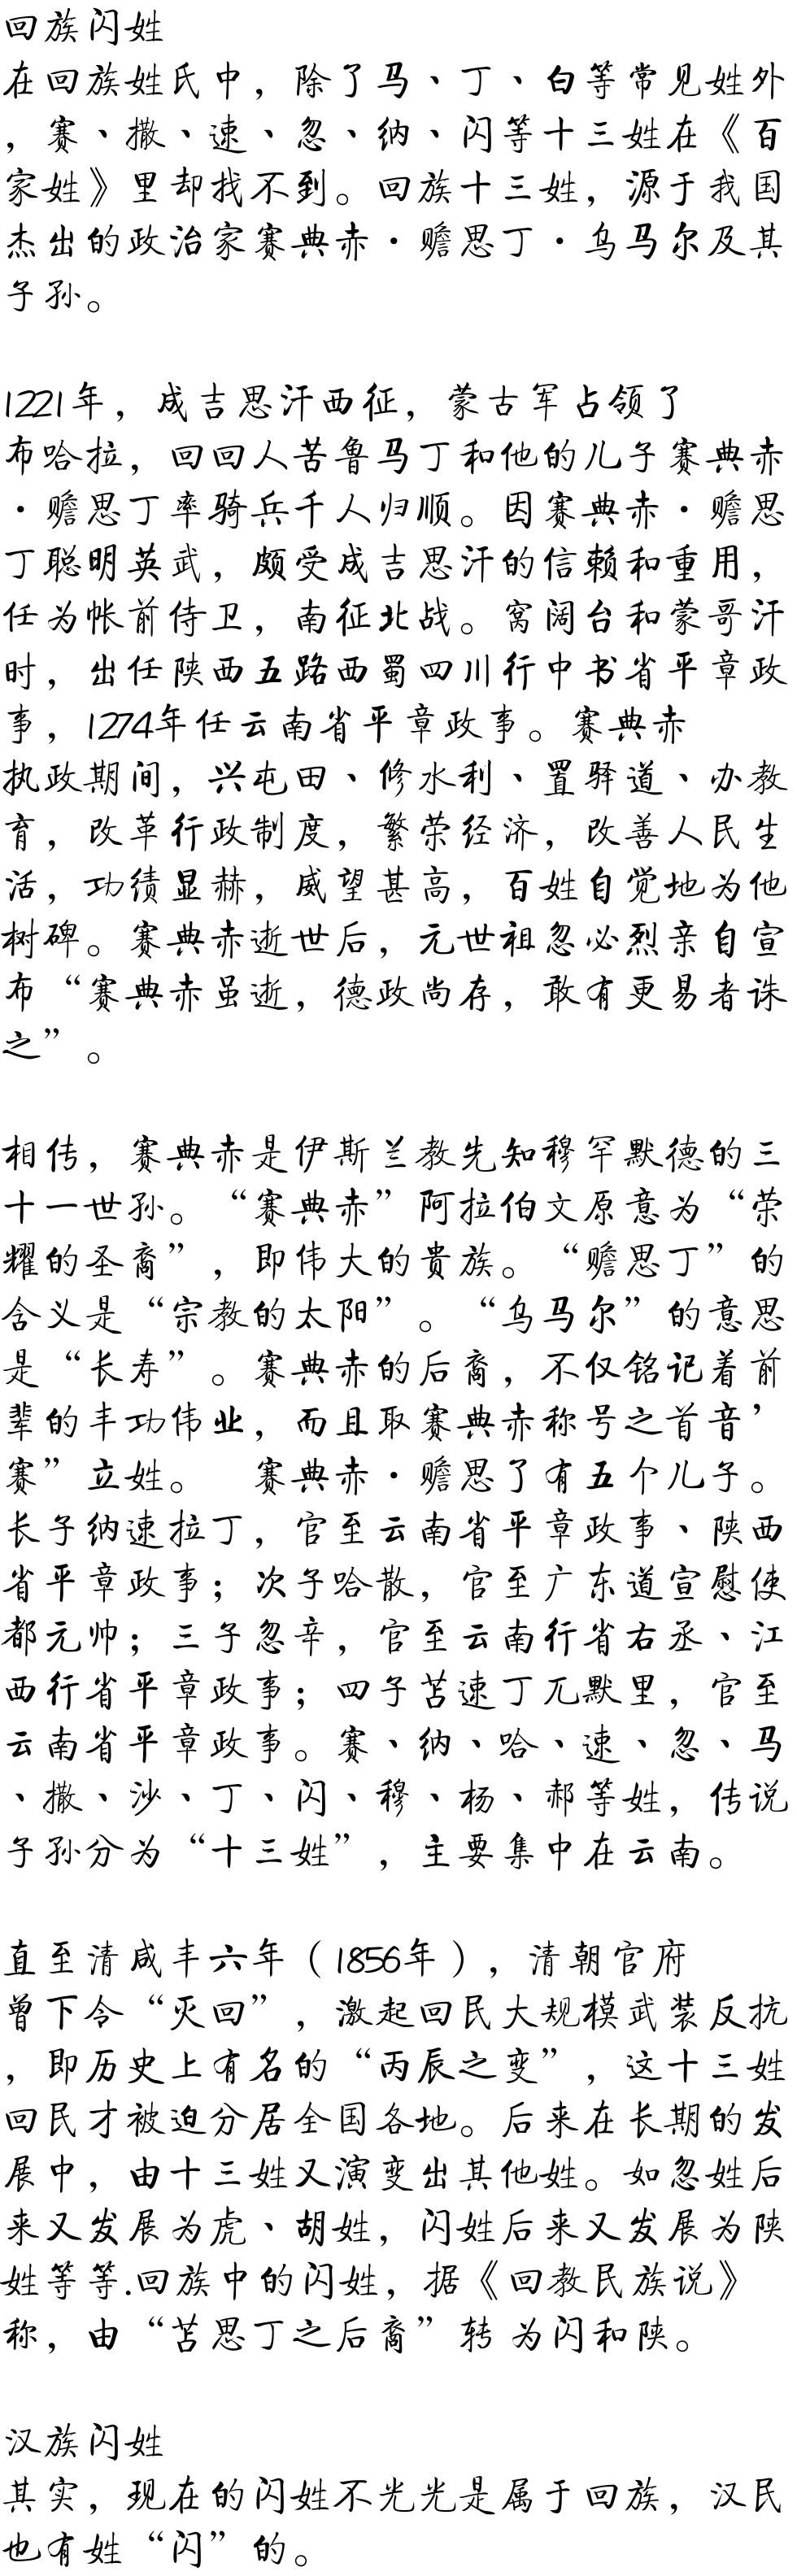 回族闪姓
在回族姓氏中，除了马、丁、白等常见姓外
，赛、撒、速、忽、纳、闪等十三姓在《百
家姓》里却找不到。回族十三姓，源于我国
杰出的政治家赛典赤·赡思丁·乌马尔及其
子孙。
1221年，成吉思汗西征，蒙古军占领了
布哈拉，回回人苦鲁马丁和他的儿子赛典赤
·赡思丁率骑兵千人归顺。因赛典赤·赡思
丁聪明英武，颇受成吉思汗的信赖和重用，
任为帐前侍卫，南征北战。窝阔台和蒙哥汗
时，出任陕西五路西蜀四川行中书省平章政
事，1274年任云南省平章政事。赛典赤
执政期间，兴屯田、修水利、置驿道、办教
育，改革行政制度，繁荣经济，改善人民生
活，功绩显赫，威望甚高，百姓自觉地为他
树碑。赛典赤逝世后，元世祖忽必烈亲自宣
布“赛典赤虽逝，德政尚存，敢有更易者诛
之”。
相传，赛典赤是伊斯兰教先知穆罕默德的三
十一世孙。“赛典赤”阿拉伯文原意为“荣
耀的圣裔”，即伟大的贵族。“赡思丁”的
含义是“宗教的太阳”。“乌马尔”的意思
是“长寿”。赛典赤的后裔，不仅铭记着前
辈的丰功伟业，而且取赛典赤称号之首音’
赛”立姓。　赛典赤·赡思了有五个儿子。
长子纳速拉丁，官至云南省平章政事、陕西
省平章政事；次子哈散，官至广东道宣慰使
都元帅；三子忽辛，官至云南行省右丞、江
西行省平章政事；四子苫速丁兀默里，官至
云南省平章政事。赛、纳、哈、速、忽、马
、撒、沙、丁、闪、穆、杨、郝等姓，传说
子孙分为“十三姓”，主要集中在云南。
直至清咸丰六年（1856年），清朝官府
曾下令“灭回”，激起回民大规模武装反抗
，即历史上有名的“丙辰之变”，这十三姓
回民才被迫分居全国各地。后来在长期的发
展中，由十三姓又演变出其他姓。如忽姓后
来又发展为虎、胡姓，闪姓后来又发展为陕
姓等等.回族中的闪姓，据《回教民族说》
称，由“苫思丁之后裔”转 为闪和陕。
汉族闪姓
其实，现在的闪姓不光光是属于回族，汉民
也有姓“闪”的。